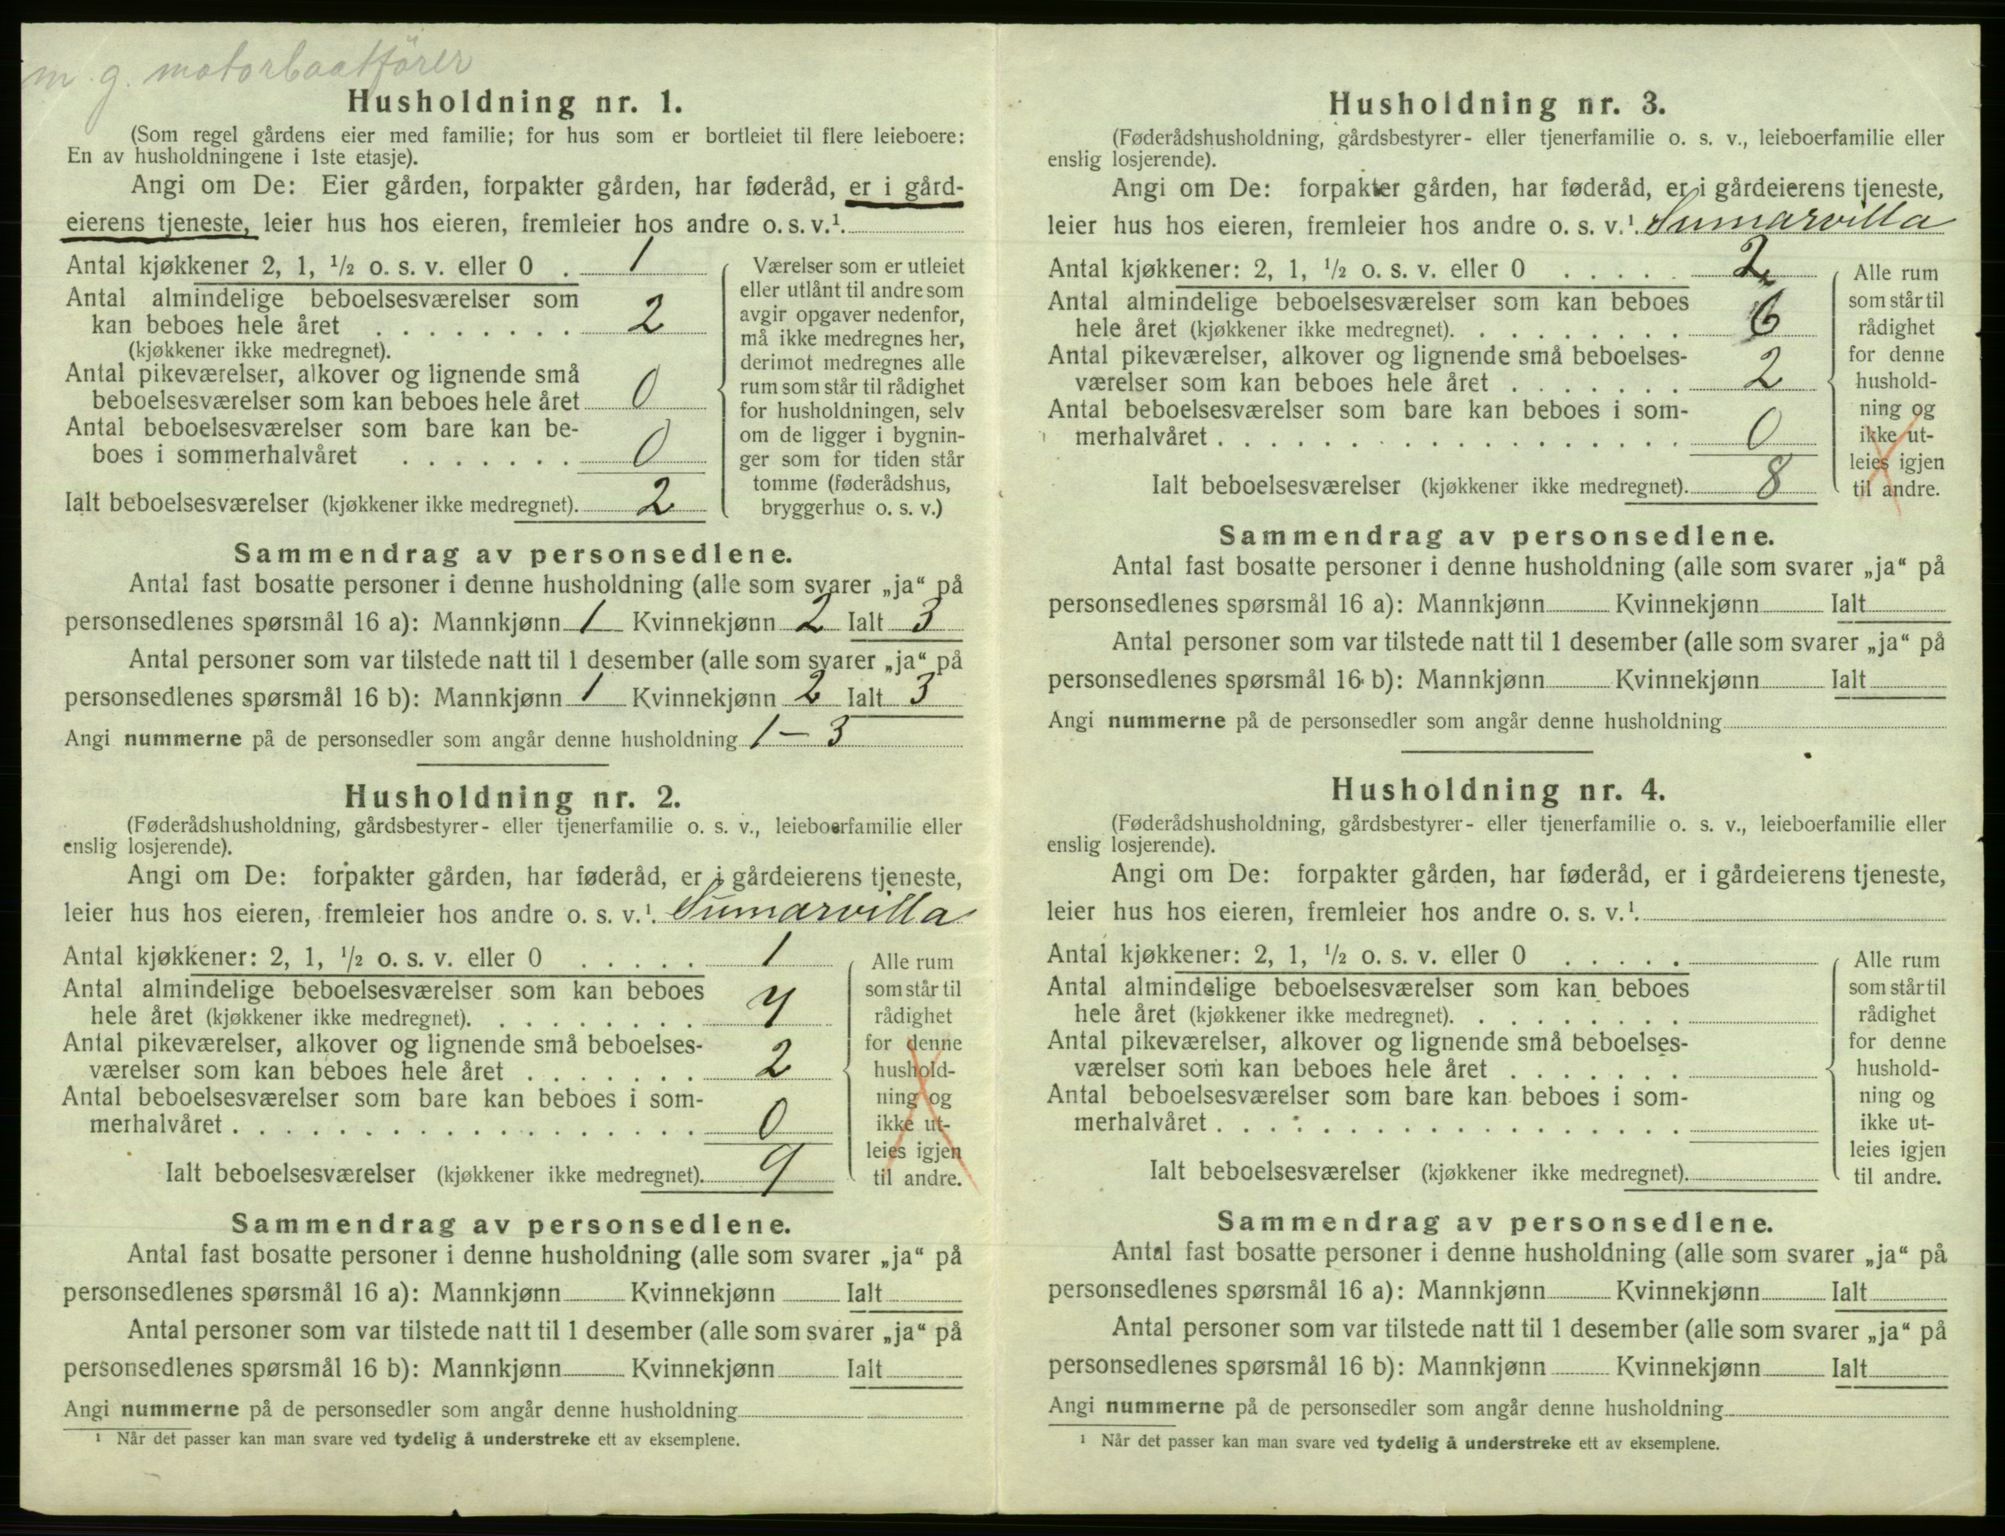 m. g. motorbaatfører
Husholdning nr. 1.
(Som regel gårdens eier med familie; for hus som er bortleiet til flere leieboere:
En av husholdningene i 1ste etasje).
Angi om De: Eier gården, forpakter gården, har føderåd, er i gård-
eierens tjeneste, leier hus hos eieren, fremleier hos andre o. s. v.¹.
Antal kjøkkener 2, 1, ½ o. s. v. eller 0 . 1
Antal almindelige beboelsesværelser som
kan beboes hele året . . . . . . . . 2
(kjøkkener ikke medregnet).
Antal pikeværelser, alkover og lignende små
beboelsesværelser som kan beboes hele året 0
Antal beboelsesværelser som bare kan be-
boes i sommerhalvåret . . . . . . . 0
Ialt beboelsesværelser (kjøkkener ikke medregnet). 2
Værelser som er utleiet
eller utlånt til andre som
avgir opgaver nedenfor,
må ikke medregnes her,
derimot medregnes alle
rum som står til rådighet
for husholdningen, selv
om de ligger i bygnin-
ger som for tiden står
tomme (føderådshus,
bryggerhus o. s. v.)
Sammendrag av personsedlene.
Antal fast bosatte personer i denne husholdning (alle som svarer „ja“ på
personsedlenes spørsmål 16 a): Mannkjønn 1 Kvinnekjønn 2 Ialt 3
Antal personer som var tilstede natt til 1 desember (alle som svarer „ja“ på
personsedlenes spørsmål 16 b): Mannkjønn 1 Kvinnekjønn 2 Ialt 3
Angi nummerne på de personsedler som angår denne husholdning 1 – 3
Husholdning nr. 2.
(Føderådshusholdning, gårdsbestyrer- eller tjenerfamilie o. s. v., leieboerfamilie eller
enslig losjerende).
Angi om De: forpakter gården, har føderåd, er i gårdeierens tjeneste,
leier hus hos eieren, fremleier hos andre o. s. v.¹. Sumarvilla
Antal kjøkkener: 2, 1, ½ o. s. v. eller 0 . . . . . 1
Antal almindelige beboelsesværelser som kan beboes
hele året (kjøkkener ikke medregnet). . . . . . . . . 7
Antal pikeværelser, alkover og lignende små beboelses-
værelser som kan beboes hele året . . . . . . . 2
Antal beboelsesværelser som bare kan beboes i som-
merhalvåret . . . . . . . . . . . . . . . . . . 0
Ialt beboelsesværelser (kjøkkener ikke medregnet). 9
Alle rum
som står til
rådighet
for denne
hushold-
ning og
ikke ut-
leies igjen
til andre.
Sammendrag av personsedlene.
Antal fast bosatte personer i denne husholdning (alle som svarer „ja“ på
personsedlenes spørsmål 16 a): Mannkjønn Kvinnekjønn Ialt
Antal personer som var tilstede natt til 1 desember (alle som svarer „ja“ på
personsedlenes spørsmål 16 b): Mannkjønn Kvinnekjønn Ialt
Angi nummerne på de personsedler som angår denne husholdning
¹ Når det passer kan man svare ved tydelig å understreke ett av eksemplene.
Husholdning nr. 3.
(Føderådshusholdning, gårdsbestyrer- eller tjenerfamilie o. s. v., leieboerfamilie eller
enslig losjerende).
Angi om De: forpakter gården, har føderåd, er i gårdeierens tjeneste,
leier hus hos eieren, fremleier hos andre o. s. v.¹. Sumarvilla
Antal kjøkkener: 2, 1, ½ o. s. v. eller 0 . . . . . 2
Antal almindelige beboelsesværelser som kan beboes
hele året (kjøkkener ikke medregnet). . . . . . . . . 6
Antal pikeværelser, alkover og lignende små beboelses-
værelser som kan beboes hele året . . . . . . . 2
Antal beboelsesværelser som bare kan beboes i som-
merhalvåret . . . . . . . . . . . . . . . . . . 0
Ialt beboelsesværelser (kjøkkener ikke medregnet). 8
Alle rum
som står til
rådighet
for denne
hushold-
ning og
ikke ut-
leies igjen
til andre.
Sammendrag av personsedlene.
Antal fast bosatte personer i denne husholdning (alle som svarer „ja“ på
personsedlenes spørsmål 16 a): Mannkjønn Kvinnekjønn Ialt
Antal personer som var tilstede natt til 1 desember (alle som svarer „ja“ på
personsedlenes spørsmål 16 b): Mannkjønn Kvinnekjønn Ialt
Angi nummerne på de personsedler som angår denne husholdning
Husholdning nr. 4.
(Føderådshusholdning, gårdsbestyrer- eller tjenerfamilie o. s. v., leieboerfamilie eller
enslig losjerende).
Angi om De: forpakter gården, har føderåd, er i gårdeierens tjeneste,
leier hus hos eieren, fremleier hos andre o. s. v.¹.
Antal kjøkkener: 2, 1, ½ o. s. v. eller 0 . . . . .
Antal almindelige beboelsesværelser som kan beboes
hele året (kjøkkener ikke medregnet). . . . . . . . .
Antal pikeværelser, alkover og lignende små beboelses-
værelser som kan beboes hele året . . . . . . .
Antal beboelsesværelser som bare kan beboes i som-
merhalvåret . . . . . . . . . . . . . . . . . .
Ialt beboelsesværelser (kjøkkener ikke medregnet).
Alle rum
som står til
rådighet
for denne
hushold-
ning og
ikke ut-
leies igjen
til andre.
Sammendrag av personsedlene.
Antal fast bosatte personer i denne husholdning (alle som svarer „ja“ på
personsedlenes spørsmål 16 a): Mannkjønn Kvinnekjønn Ialt
Antal personer som var tilstede natt til 1 desember (alle som svarer „ja“ på
personsedlenes spørsmål 16 b): Mannkjønn Kvinnekjønn Ialt
Angi nummerne på de personsedler som angår denne husholdning
¹ Når det passer kan man svare ved tydelig å understreke ett av eksemplene.